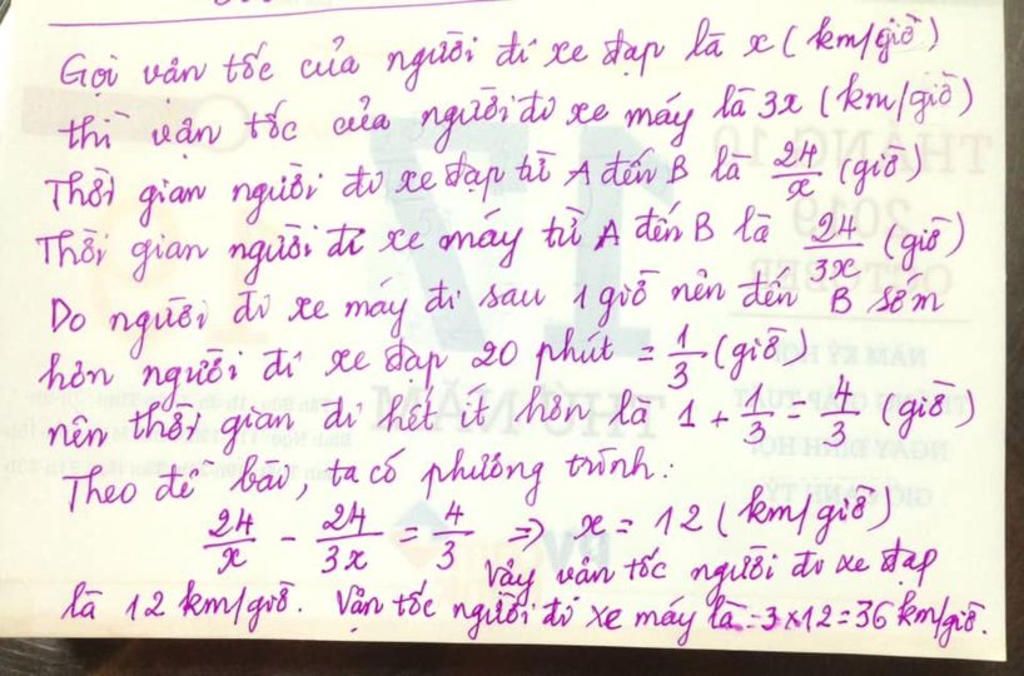 Gọi vận tốc của người đi xe đạp là x (km/giờ)
thì vận tốc của người đi xe máy là 3x (km/giờ)
Thời gian người đi xe đạp từ A đến B là 24/x (giờ)
Thời gian người đi xe máy từ A đến B là 24/3x (giờ)
Do người đi xe máy đi sau 1 giờ nên đến B sớm
hơn người đi xe đạp 20 phút = 1/3 (giờ)
nên thời gian đi hết ít hơn là 1 + 1/3 = 4/3 (giờ)
Theo đề bài, ta có phương trình:
24/x - 24/3x = 4/3 => x = 12 (km/giờ)
Vậy vận tốc người đi xe đạp
là 12 km/giờ. Vận tốc người đi xe máy là = 3 x 12 = 36 km/giờ.
THÁNG 10
2019
OCTOBER
17
THỨ NĂM
NĂM KỶ HỢI
THÁNG GIÁP TUẤT
NGÀY ĐINH HỢI
GIỜ CANH TÝ